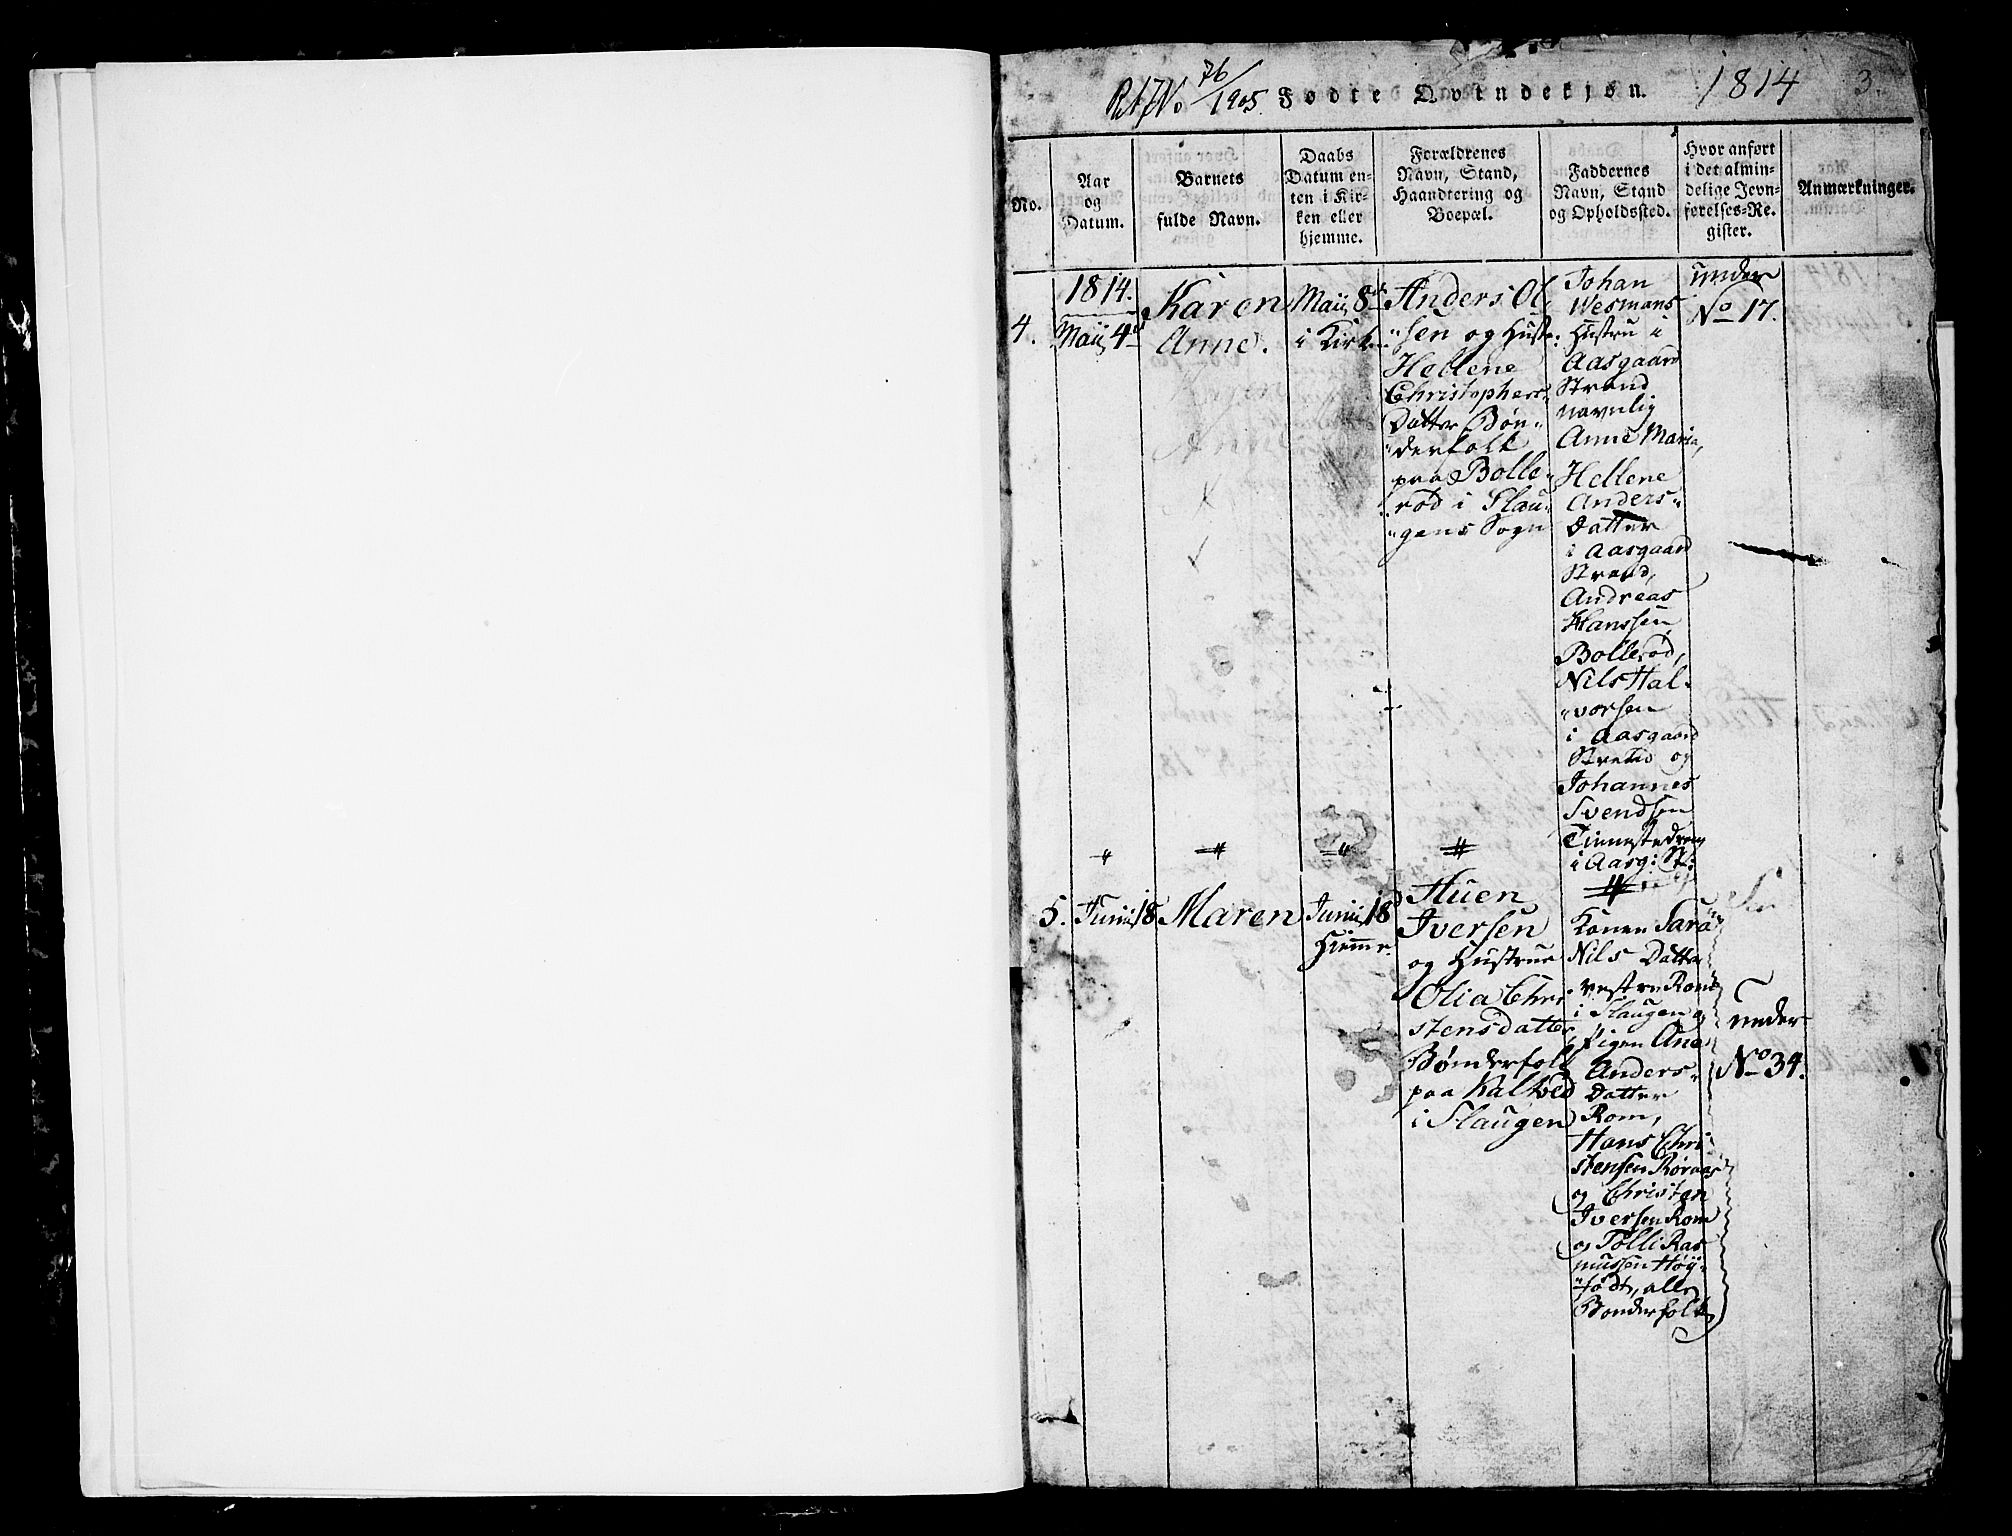 76/1905. Fødte Qvindekjøn. 1814 3.
No.
Aar
og
Datum.
Barnets
fulde Navn.
Daabs
Datum en-
ten i Kir-
ken eller
hjemme.
Forældrenes
Navn, Stand,
Haandtering og
Boepæl.
Faddernes
Navn, Stand
og Opholdssted.
Hvor anført
i det almin-
delige Jevn-
førelses-Re-
gister.
Anmærkninger.
4.
1814.
Maii 4de
Karen
Anne.
Maii 8de
i Kirken
Anders Ol
"sen og Hustr:
Hellene
Christophers-
Datter Bøn-
"derfolk
paa Bolle-
rød i Slau-
"gens Sogn
Johan
Wesmans
Hustru i
Aasgaard
Strand
navnlig
Anne Maria,
Hellene
Anders-
Datter
i Aasgaard
Strand,
Andreas
Hanssen
Bollerød,
Nils Hal-
"vorsen
i Aasgaard
Strand og
Johannes
Svendsen
i Aasg: St:
under
No 17.
5.
Junii 18
Maren
Junii 18
Hiemme.
Iversen
og Hustrue
Olia Chri
stensdatter
Bønderfolk
paa Kalved
i Slaugen
Konen Sara
Nils Datter
vestre Rom
i Slaugen og
Pigen Ane
Anders-
Datter
Rom,
Hans Chri
stensen Røraas
og Christen
Iversen Rom
og Tolli Ras
mussen Høy-
"jødt, alle
Bønderfolk
under
No 34.